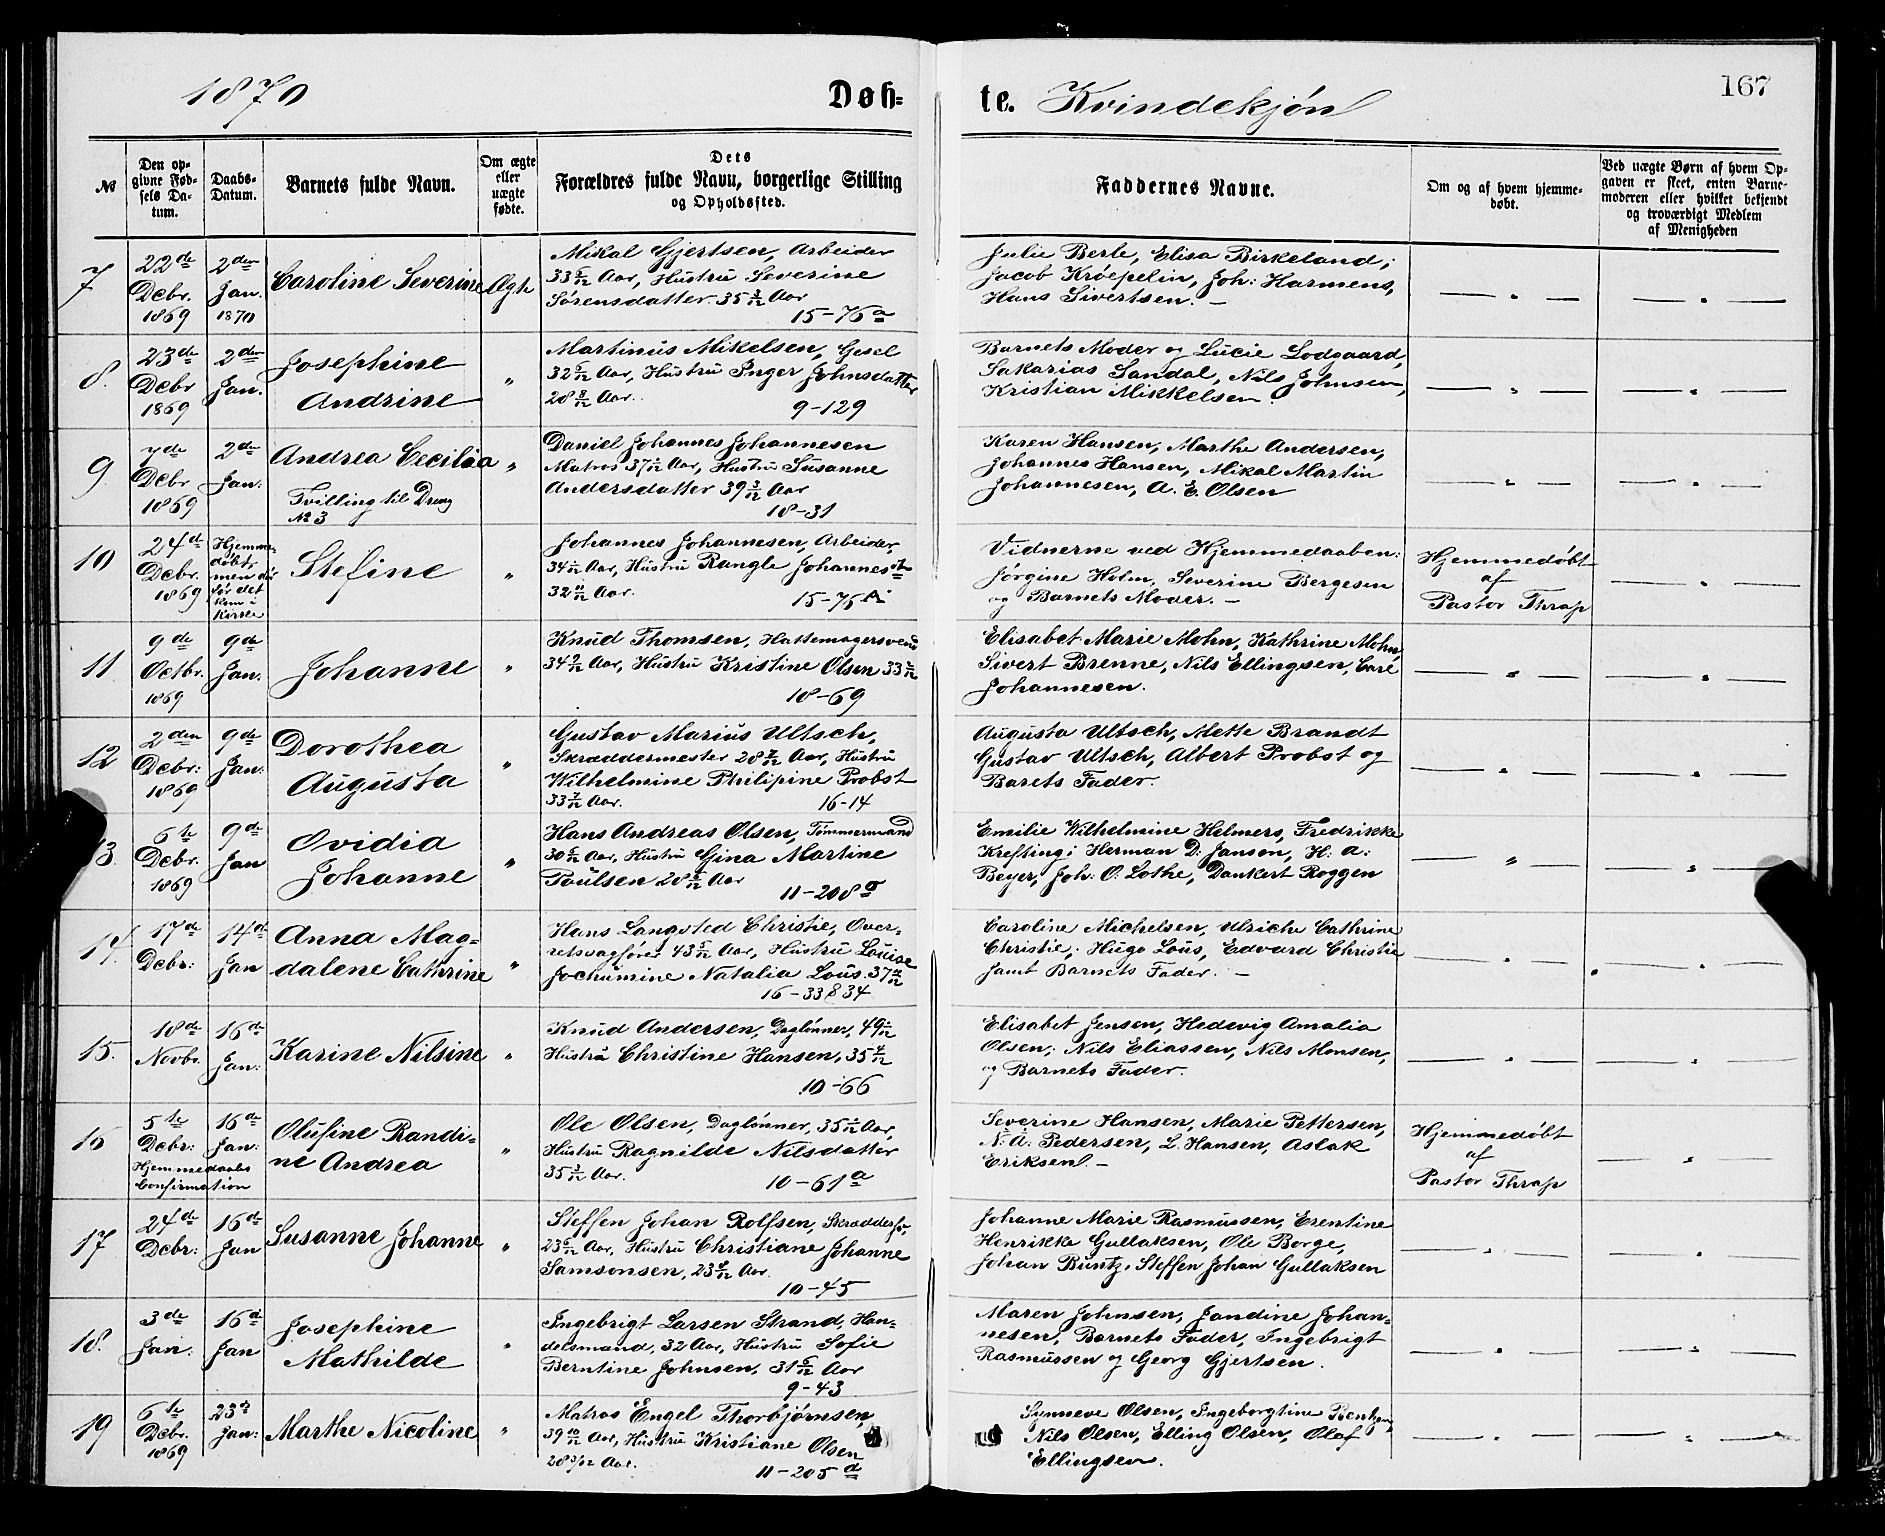 1870 Døb= te. Kvindekjøn 167
№
Den op-
givne Fød-
sels Da-
tum.
Daabs-
Datum.
Barnets fulde Navn.
Om ægte
eller
uægte
fødte.
Dets
Forældres fulde Navn, borgerlige Stilling
og Opholdssted.
Faddernes Navne.
Om og af hvem hjemme-
døbt.
Ved uægte Børn af hvem Op-
gaven er skeet, enten Barne-
moderen eller hvilket bekjendt
og troværdigt Medlem
af Menigheden
7
22de
Debr.
1869
2den
Jan.
1870
Caroline Severine
Ægte
Mikal Gjertsen, Arbeider
33 Aar, Hustru Severine
Sørensdatter 35 3/12 Aar
15-76a
Julie Berle, Elisa Birkeland;
Jacob Krøepelin, Joh: Harmens,
Hans Sivertsen. –
8.
23de
Debr
1869
2den
Jan.
Josephine
Andrine
"
Martinus Mikelsen, Gesel
32 Aar, Hustru Inger Johnsdatter
28 8/12 Aar.
9-129
Barnets Moder og Lucie Lodgaard,
Sakarias Sandal, Nils Johnsen,
Kristian Mikkelsen.
9
7de
Debr
1869
2de
Jan:
Andrea Cecilia
Tvilling til Dreng
№ 3
"
Daniel Johannes Johannesen
Matros 37 Aar, Hustru Susanne
Andersdatter 39 3/12 Aar
18-31
Karen Hansen, Marthe Andersen,
Johannes Hansen, Mikal Martin
Johannesen, A. E. Olsen
10
24de
Debr.
1869
Hjemme-
døbt,
men dør
før det
kom i
Kirke
Stefine
"
Johannes Johannesen, Arbeider
34 Aar, Hustru Rangle Johannesdt
32 11/12 Aar.
15-75A
Vidnerne ved Hjemmedaaben:
Jørgine Holm, Severine Bergesen
og Barnets Moder. –
Hjemmedøbt
af
Pastor Thrap
11
9de
Octbr.
1869
9de
Jan.
Johanne
"
Knud Thomsen, Hattemagersvend
34 Aar, Hustru Kristine Olsen 33
18-69
Elisabet Marie Mohn, Kathrine Mohn
Sivert Brenne, Nils Ellingsen, Carl
Johannesen.
12
2den
Debr:
1869
9de
Jan:
Dorothea
Augusta
"
Gustav Marius Ultsch,
Skræddermester 28 7/12 Aar, Hustru
Wilhelmine Philipine Probst
33 7/12 Aar.
16-14
Augusta Ultsch, Mette Brandt
Gustav Ultsch, Albert Probst og
Barets Fader.
3.
6te
Debr.
1869
9de
Jan
Ovidia
Johanne
"
Hans Andreas Olsen, Tømmermand
30 Aar, Hustru Gina Martine
Poulsen 28 Aar
11-208
Emilie Wilhelmine Helmers, Fredrikke
Krefting; Herman D: Janson, H: A:
Beyer, Joh: O. Lothe, Dankert Roggen
14.
17de
Debr:
14de
Jan
Anna Mag-
dalene Cathrine
"
Hans Langsted Christie, Over-
retssagfører 43 5/12 Aar, Hustru Louise
Jochumine Natalia Lous. 37
16-33 & 34
Caroline Michelsen, Ulriche Cathrine
Christie; Hugo Lous, Edvard Christie
samt Barnets Fader. –
15.
18de
Novbr.
16de
Jan:
Karine Nilsine
"
Knud Andersen, Daglønner, 49
Hustru Christine Hansen, 35
10-66
Elisabet Jensen, Hedevig Amalia
Olsen; Nils Eliassen, Nils Monsen,
og Barnets Fader.
16
5te
Debr:
Hjemmedaabs
Confirmation
16de
Jan:
Olufine Randi-
ne Andrea
"
Ole Olsen, Daglønner, 35 Aar,
Hustru Ragnilde Nilsdatter
35 3/12 Aar.
10-61a
Severine Hansen, Marie Pettersen,
N. A: Pedersen, L. Hansen, Aslak
Eriksen. –
Hjemmedøbt
af
Pastor Thrap
17
24de
Debr:
16de
Jan
Susanne Johanne
"
Steffen Johan Rolfsen,
23 Aar, Hustru Christiane Johanne
Samsonsen, 23 Aar.
10-45
Johanne Marie Rasmussen, Erentine
Henrikke Gullaksen, Ole Borge,
Johan Buntz, Steffen Johan Gullaksen
18.
3de
Jan:
16de
Jan
Josephine
Mathilde
"
Ingebrigt Larsen Strand, Han-
delsmand, 32 Aar, Hustru Sofie
Berntine Johnsen, 31 Aar
9-43
Maren Johnsen, Jandine Johan-
nesen, Barnets Fader, Ingebrigt
Rasmussen og Georg Gjertsen.
19
6te
Debr.
1869
23de
Jan:
Marthe Nicoline
"
Matros Engel Thorbjørnsen
39 10/12 Aar, Hustru Kristiane Olsen
28 Aar.
11-205d
Synneve Olsen, Ingeborgtine
Nils Olsen, Elling Olsen, Olaf
Ellingsen.